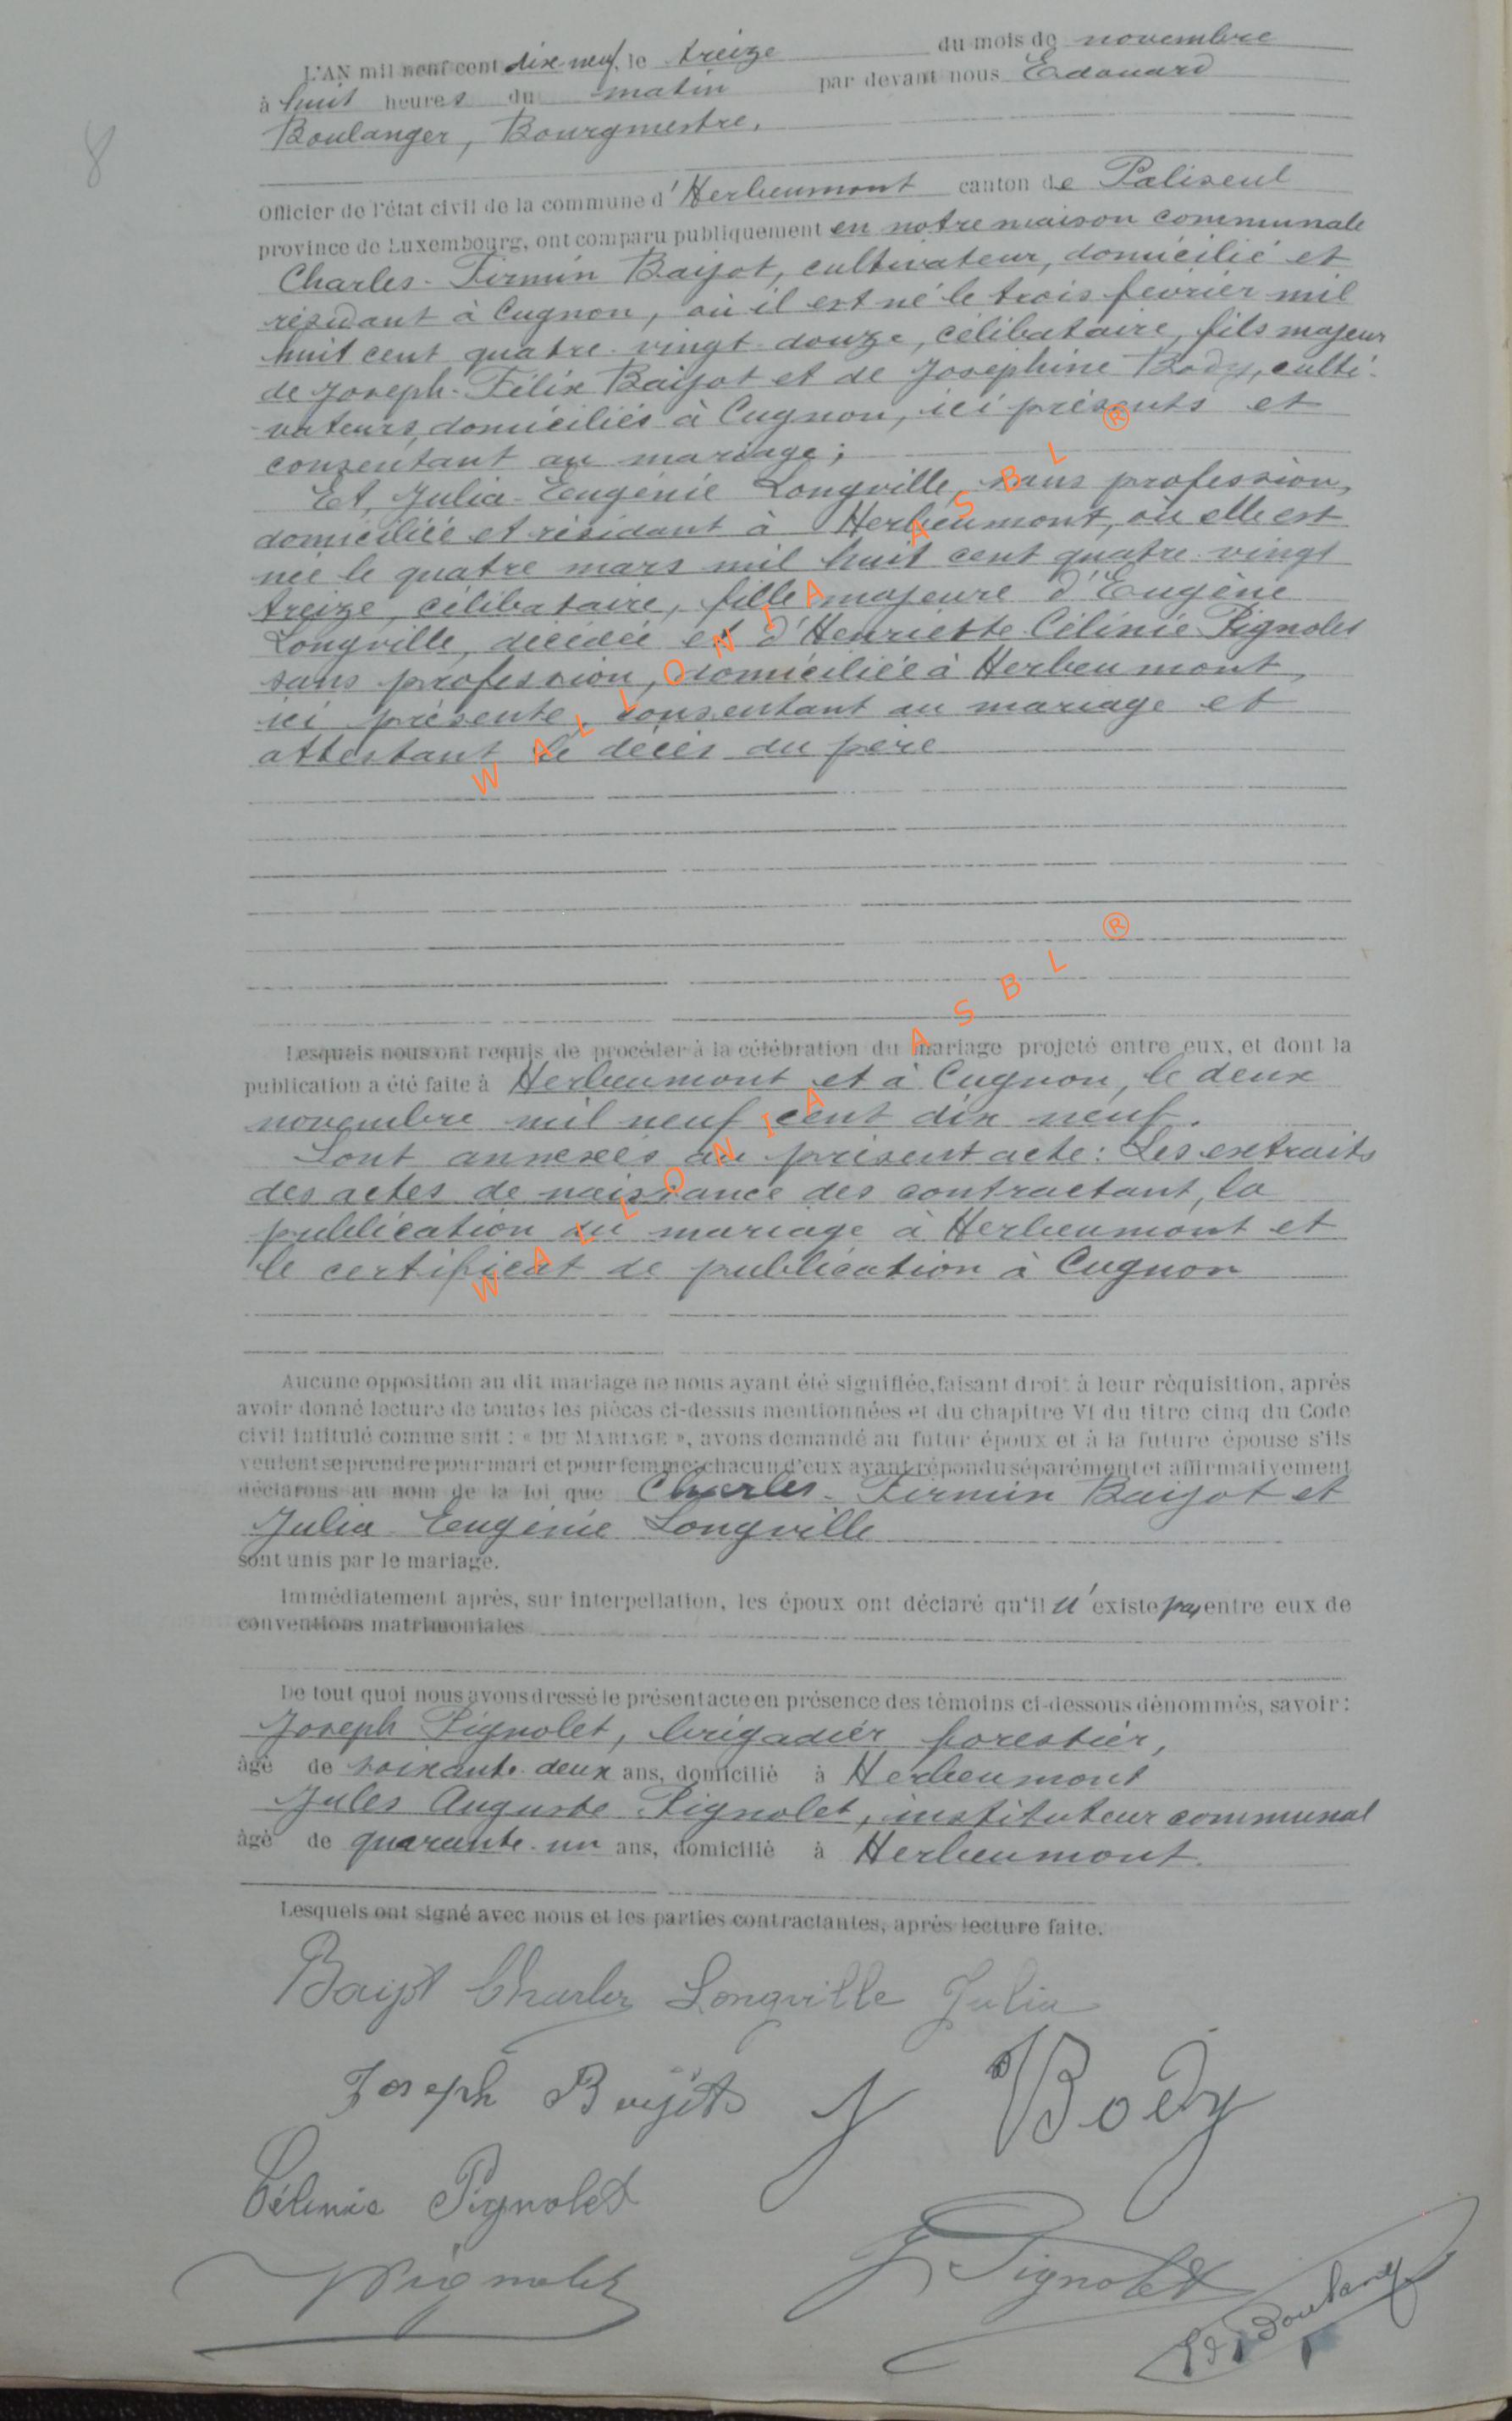 8
L'AN mil neuf cent dix-neuf, le treize du mois de novembre
à huit heures du matin par devant nous Edouard
Boulanger, Bourgmestre,
Officier de l'état civil de la commune d'Herbeumont canton de Paliseul
province de Luxembourg, ont comparu publiquement en notre maison communale
Charles-Firmin Baijot, cultivateur, domicilié et
résidant à Cugnon, où il est né le trois février mil
huit cent quatre-vingt-douze, célibataire, fils majeur
de Joseph-Félix Baijot et de Joséphine Body, culti-
vateurs, domiciliés à Cugnon, ici présents et
consentant au mariage;
Et, Julia-Eugénie Longville, sans profession,
domiciliée et résidant à Herbeumont, où elle est
née le quatre mars mil huit cent quatre-vingt
treize, célibataire, fille majeure d'Eugène
Longville, décédé et d'Henriette-Célinie Pignolet
sans profession, domiciliée à Herbeumont,
ici présente, consentant au mariage et
attestant le décès du père
WALLONIA ASBL ®
Lesquels nous ont requis de procéder à la célébration du mariage projeté entre eux, et dont la
publication a été faite à Herbeumont et à Cugnon, le deux
novembre mil neuf cent dix neuf.
Sont annexés au présent acte: Les extraits
des actes de naissance des contractant, la
publication du mariage à Herbeumont et
le certificat de publication à Cugnon
WALLONIA ASBL ®
Aucune opposition au dit mariage ne nous ayant été signifiée, faisant droit à leur réquisition, après
avoir donné lecture de toutes les pièces ci-dessus mentionnées et du chapitre VI du titre cinq du Code
civil intitulé comme suit : « DU MARIAGE », avons demandé au futur époux et à la future épouse s'ils
veulent se prendre pour mari et pour femme; chacun d'eux ayant répondu séparément et affirmativement
déclarons au nom de la loi que Charles-Firmin Baijot et
Julia Eugénie Longville
sont unis par le mariage.
Immédiatement après, sur interpellation, les époux ont déclaré qu'il n'existe pas entre eux de
conventions matrimoniales
De tout quoi nous avons dressé le présent acte en présence des témoins ci-dessous dénommés, savoir:
Joseph Pignolet, brigadier forestier,
âgé de soixante-deux ans, domicilié à Herbeumont
Jules Auguste Pignolet, instituteur communal
âgé de quarante-un ans, domicilié à Herbeumont.
Lesquels ont signé avec nous et les parties contractantes, après lecture faite.
Baijot Charles Longville Julia
Joseph Baijot J Body
Célinie Pignolet
J Pignolet J Pignolet
Ed Boulanger